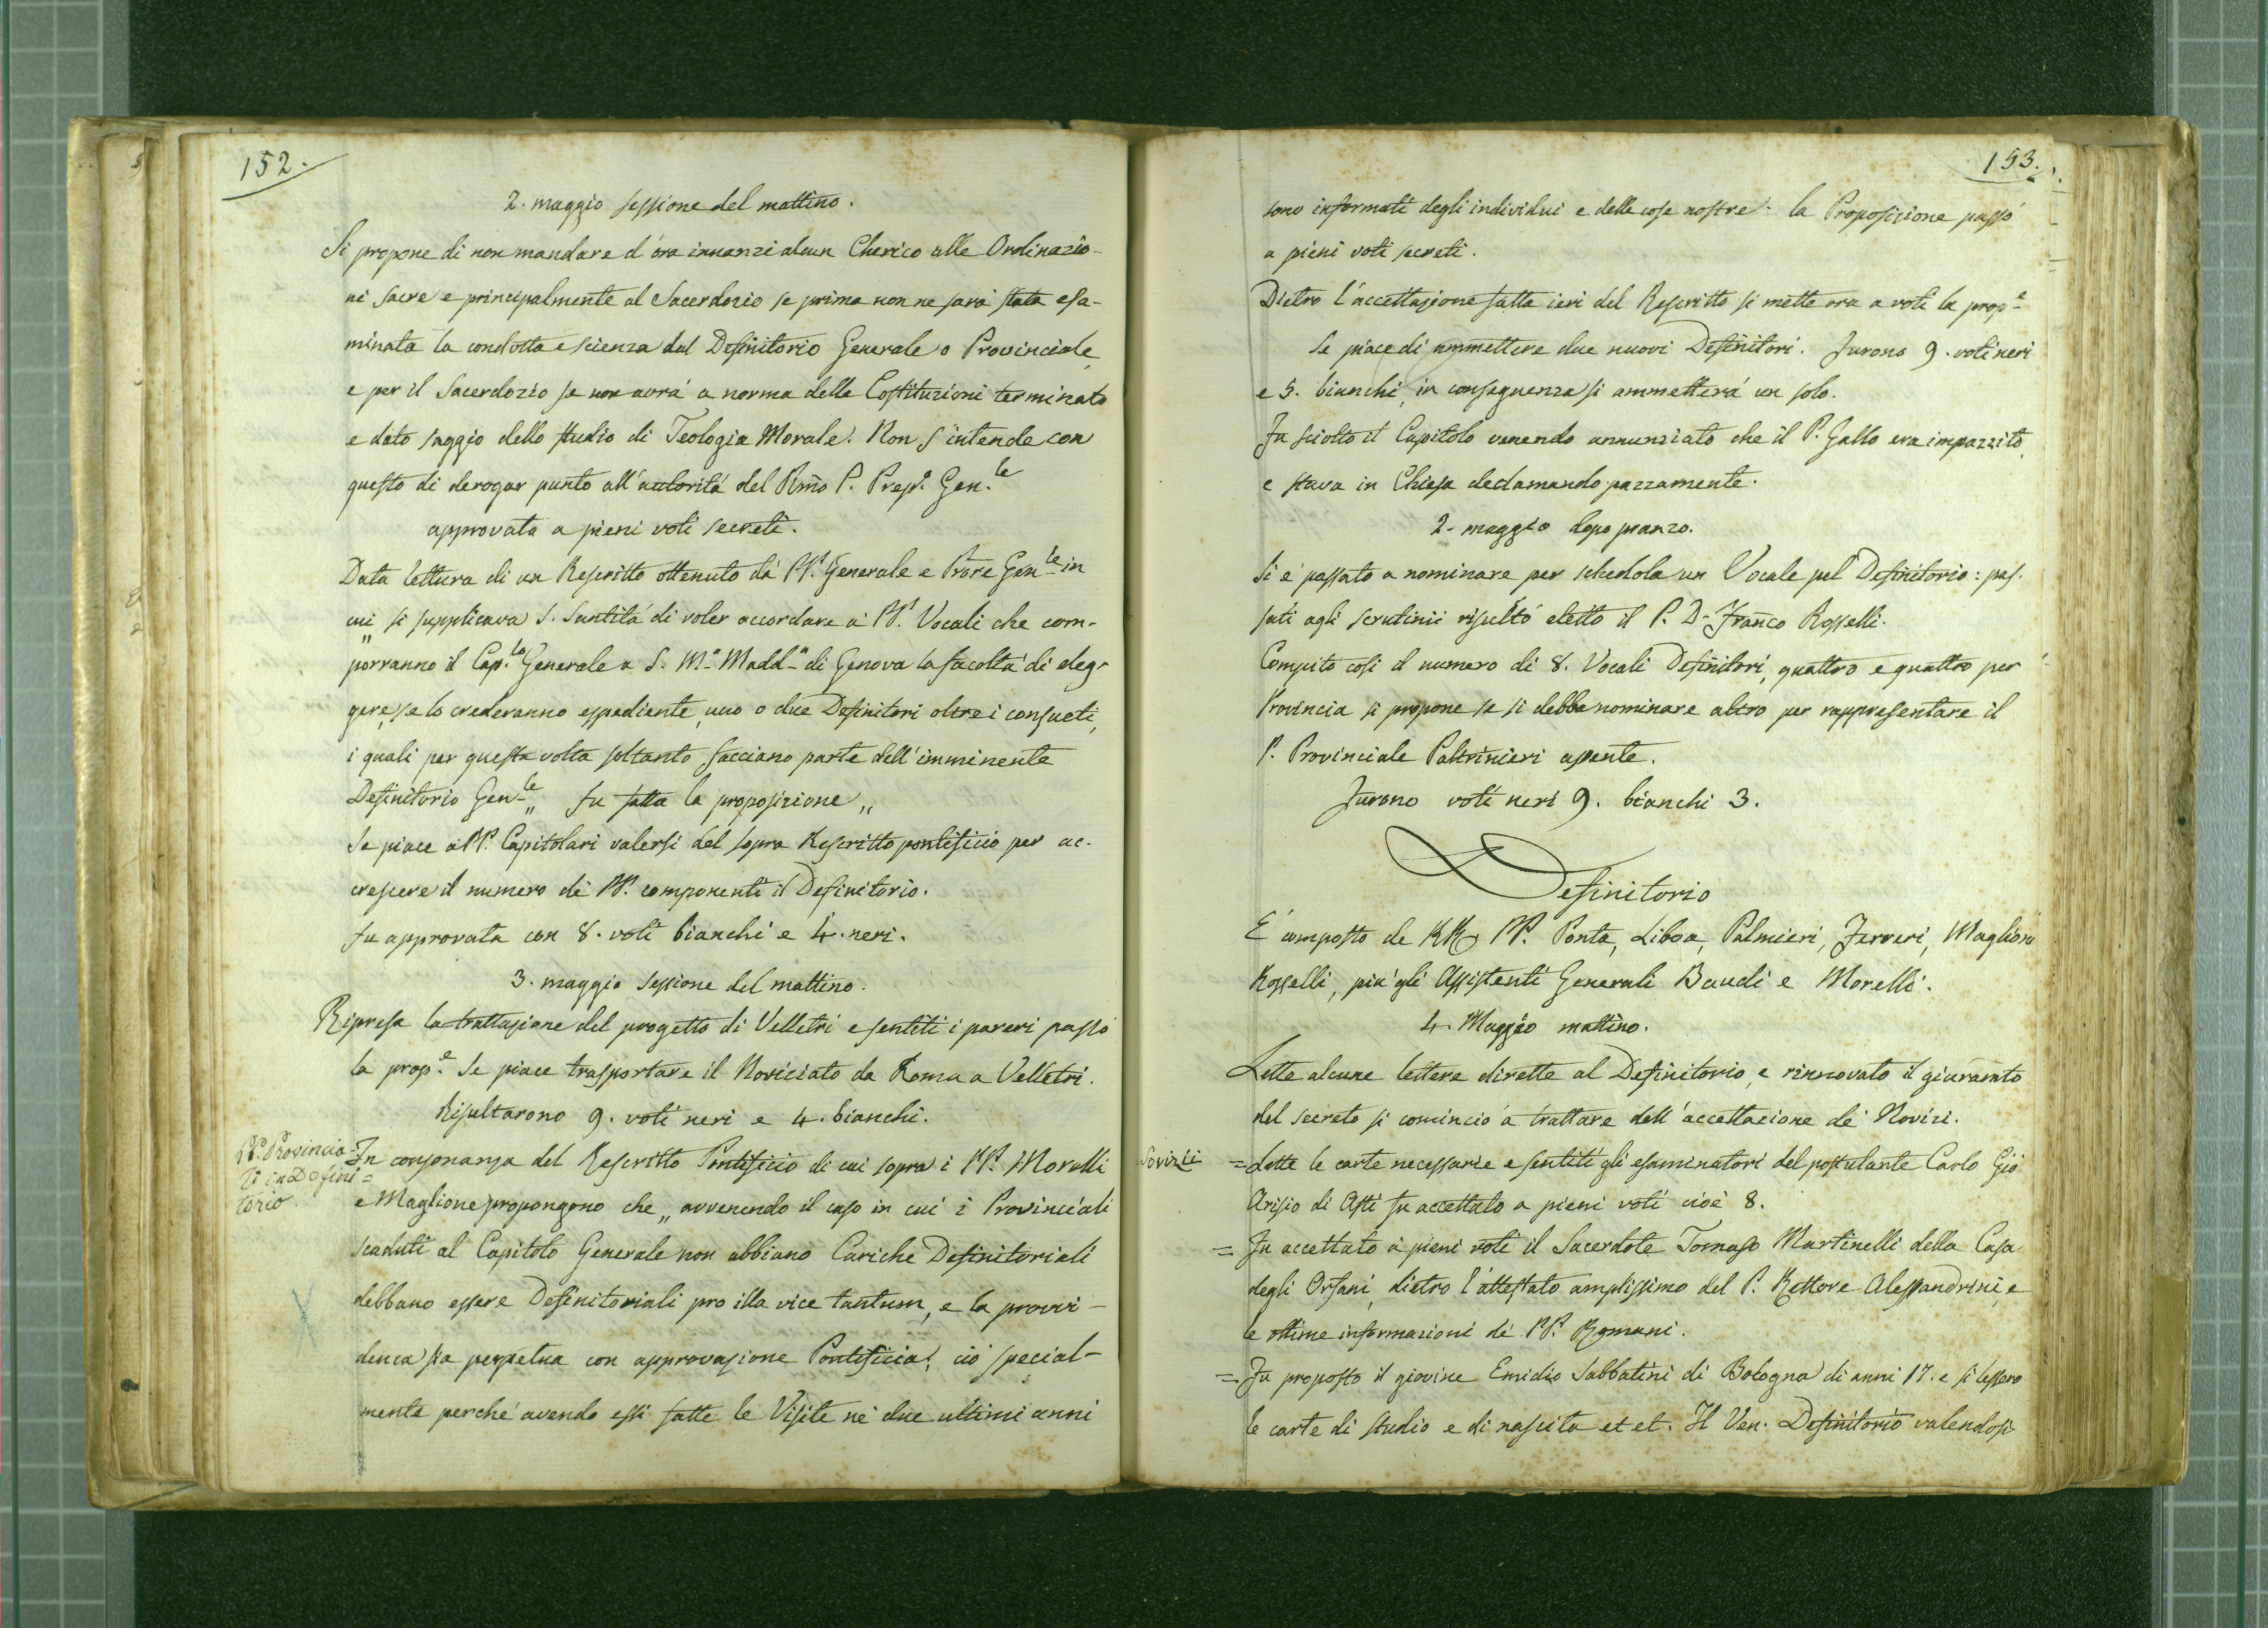 152.
2. maggio sessione del mattino.
Si propone di non mandare d'ora innanzi alcun Cherico alle Ordinazio-
ni sacre e principalmente al Sacerdozio se prima non ne sarà stata esa-
minata la condotta e scienza dal Definitorio Generale o Provinciale,
e per il Sacerdozio se non avrà a norma delle Costituzioni terminato
e dato saggio dello studio di Teologia Morale. Non s'intende con
questo di derogar punto all'autorità del Rmo P. Prep. Gen.le
approvata a pieni voti secreti.
Data lettura di un Rescritto ottenuto dà PP. Generale e Prore Gen.le in
cui si supplicava S. Santità di voler accordare a' PP. Vocali che com-
„ porranno il Cap.lo Generale a S. M.a Madd.a di Genova la facoltà di eleg-
gere, se lo crederanno espediente, uno o due Definitori oltre i consueti,
i quali per questa volta soltanto facciano parte dell'imminente
Definitorio Gen.le „ fu fatta la proposizione „
Se piace a' PP. Capitolari valersi del sopra Rescritto pontificio per ac-
crescere il numero de' PP. componenti il Definitorio.
fu approvata con 8. voti bianchi e 4. neri.
3. maggio sessione del mattino.
Ripresa la trattazione del progetto di Velletri e sentiti i pareri passò
la prop.e Se piace trasportare il Noviciato da Roma a Velletri.
Risultarono 9. voti neri e 4. bianchi.
PP. Provincia-
li in Defini=
torio.
In consonanza del Rescritto Pontificio di cui sopra i PP. Morelli
e Maglione propongono che „ avvenendo il caso in cui i Provinciali
scaduti al Capitolo Generale non abbiano Cariche Definitoriali
debbano essere Definitoriali pro illa vice tantum, e la provvi-
denza sia perpetua con approvazione Pontificia; ciò special-
mente perché avendo essi fatte le Visite ne' due ultimi anni
153.
sono informati degli individui e delle cose nostre. la Proposizione passò
a pieni voti secreti.
Dietro l'accettazione fatta ieri del Rescritto si mette ora a voti la prop.e
Se piace di ammettere due nuovi Definitori. Furono 9. voti neri
e 5. bianchi, in conseguenza si ammetterà un solo.
Fu sciolto il Capitolo venendo annunziato che il P. Gallo era impazzito,
e stava in Chiesa declamando pazzamente.
2. maggio dopo pranzo.
Si è passato a nominare per schedola un Vocale pel Definitorio: pas-
sati agli scrutinii risultò eletto il P. D. Franco Rosselli.
Compito così il numero di 8. Vocali Definitori, quattro e quattro per
Provincia si propone se si debba nominare altro per rappresentare il
P. Provinciale Paltrinieri assente.
Furono voti neri 9. bianchi 3.
Definitorio
È composto de RR. PP. Ponta, Liboà, Palmieri, Ferreri, Maglioni
Rosselli, più gli Assistenti Generali Baudi e Morelli.
4. Maggio mattino.
Lette alcune lettere dirette al Definitorio, e rinnovato il giuramto
del secreto si cominciò a trattare dell'accettazione de' Novizi.
Novizi
= Lette le carte necessarie e sentiti gli esaminatori del postulante Carlo Gio
Arisio di Asti fu accettato a pieni voti cioè 8.
= Fu accettato a pieni voti il Sacerdote Tomaso Martinelli della Casa
degli Orfani, dietro l'attestato amplissimo del P. Rettore Alessandrini, e
le ottime informazioni de' PP. Romani.
= Fu proposto il giovine Emidio Sabbatini di Bologna di anni 17. e si lessero
le carte di studio e di nascita et et. Il Ven. Definitorio valendosi